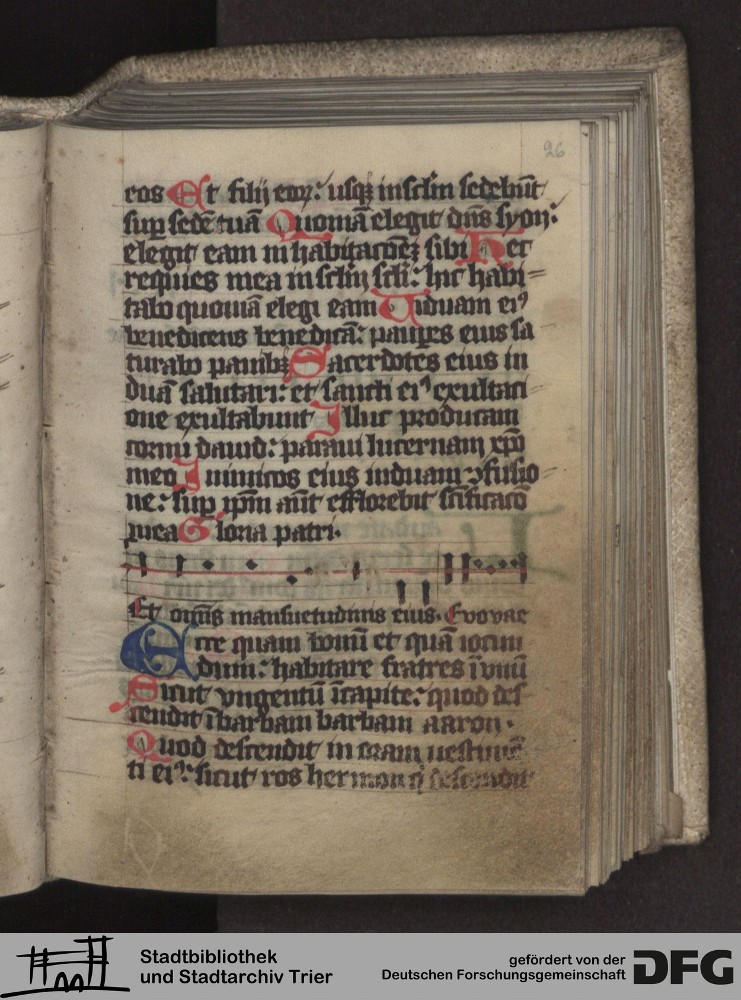 26
eos Et filij eoꝝ: usqꝫ in sclm̄ sedebūt
sup̱ sedē tuā Quoniā elegit dn̄s syon:
elegit eam in habitacōeꝫ sibi Hec
requies mea in sclm̄ scli: hic habi=
tabo quoniā elegi eam Viduam eiꝰ
benedicens benedicā: paup̱es eius sa
turabo panibꝫ Sacerdotes eius in
duā salutari: et sancti eiꝰ exultaci
one exultabunt Illuc producam
cornu dauid: paraui lucernam xp̄o
meo Inimicos eius induam ꝯfusio
ne: sup̱ ip̄m aūt efflorebit sc̄ificacō
mea Gloria patri.
Et om̄is mansuetudinis eius. Evovae
Ecce quam bonū et quā iocun
dum: habitare fratres ī vnū
Sicut vngentū ī capite: quod des
cendit ī barbam barbam aaron.
Quod descendit in oram uestimē
ti eiꝰ: sicut ros hermon q̄ descendit
Stadtbibliothek
und Stadtarchiv Trier
gefördert von der
Deutschen Forschungsgemeinschaft
DFG